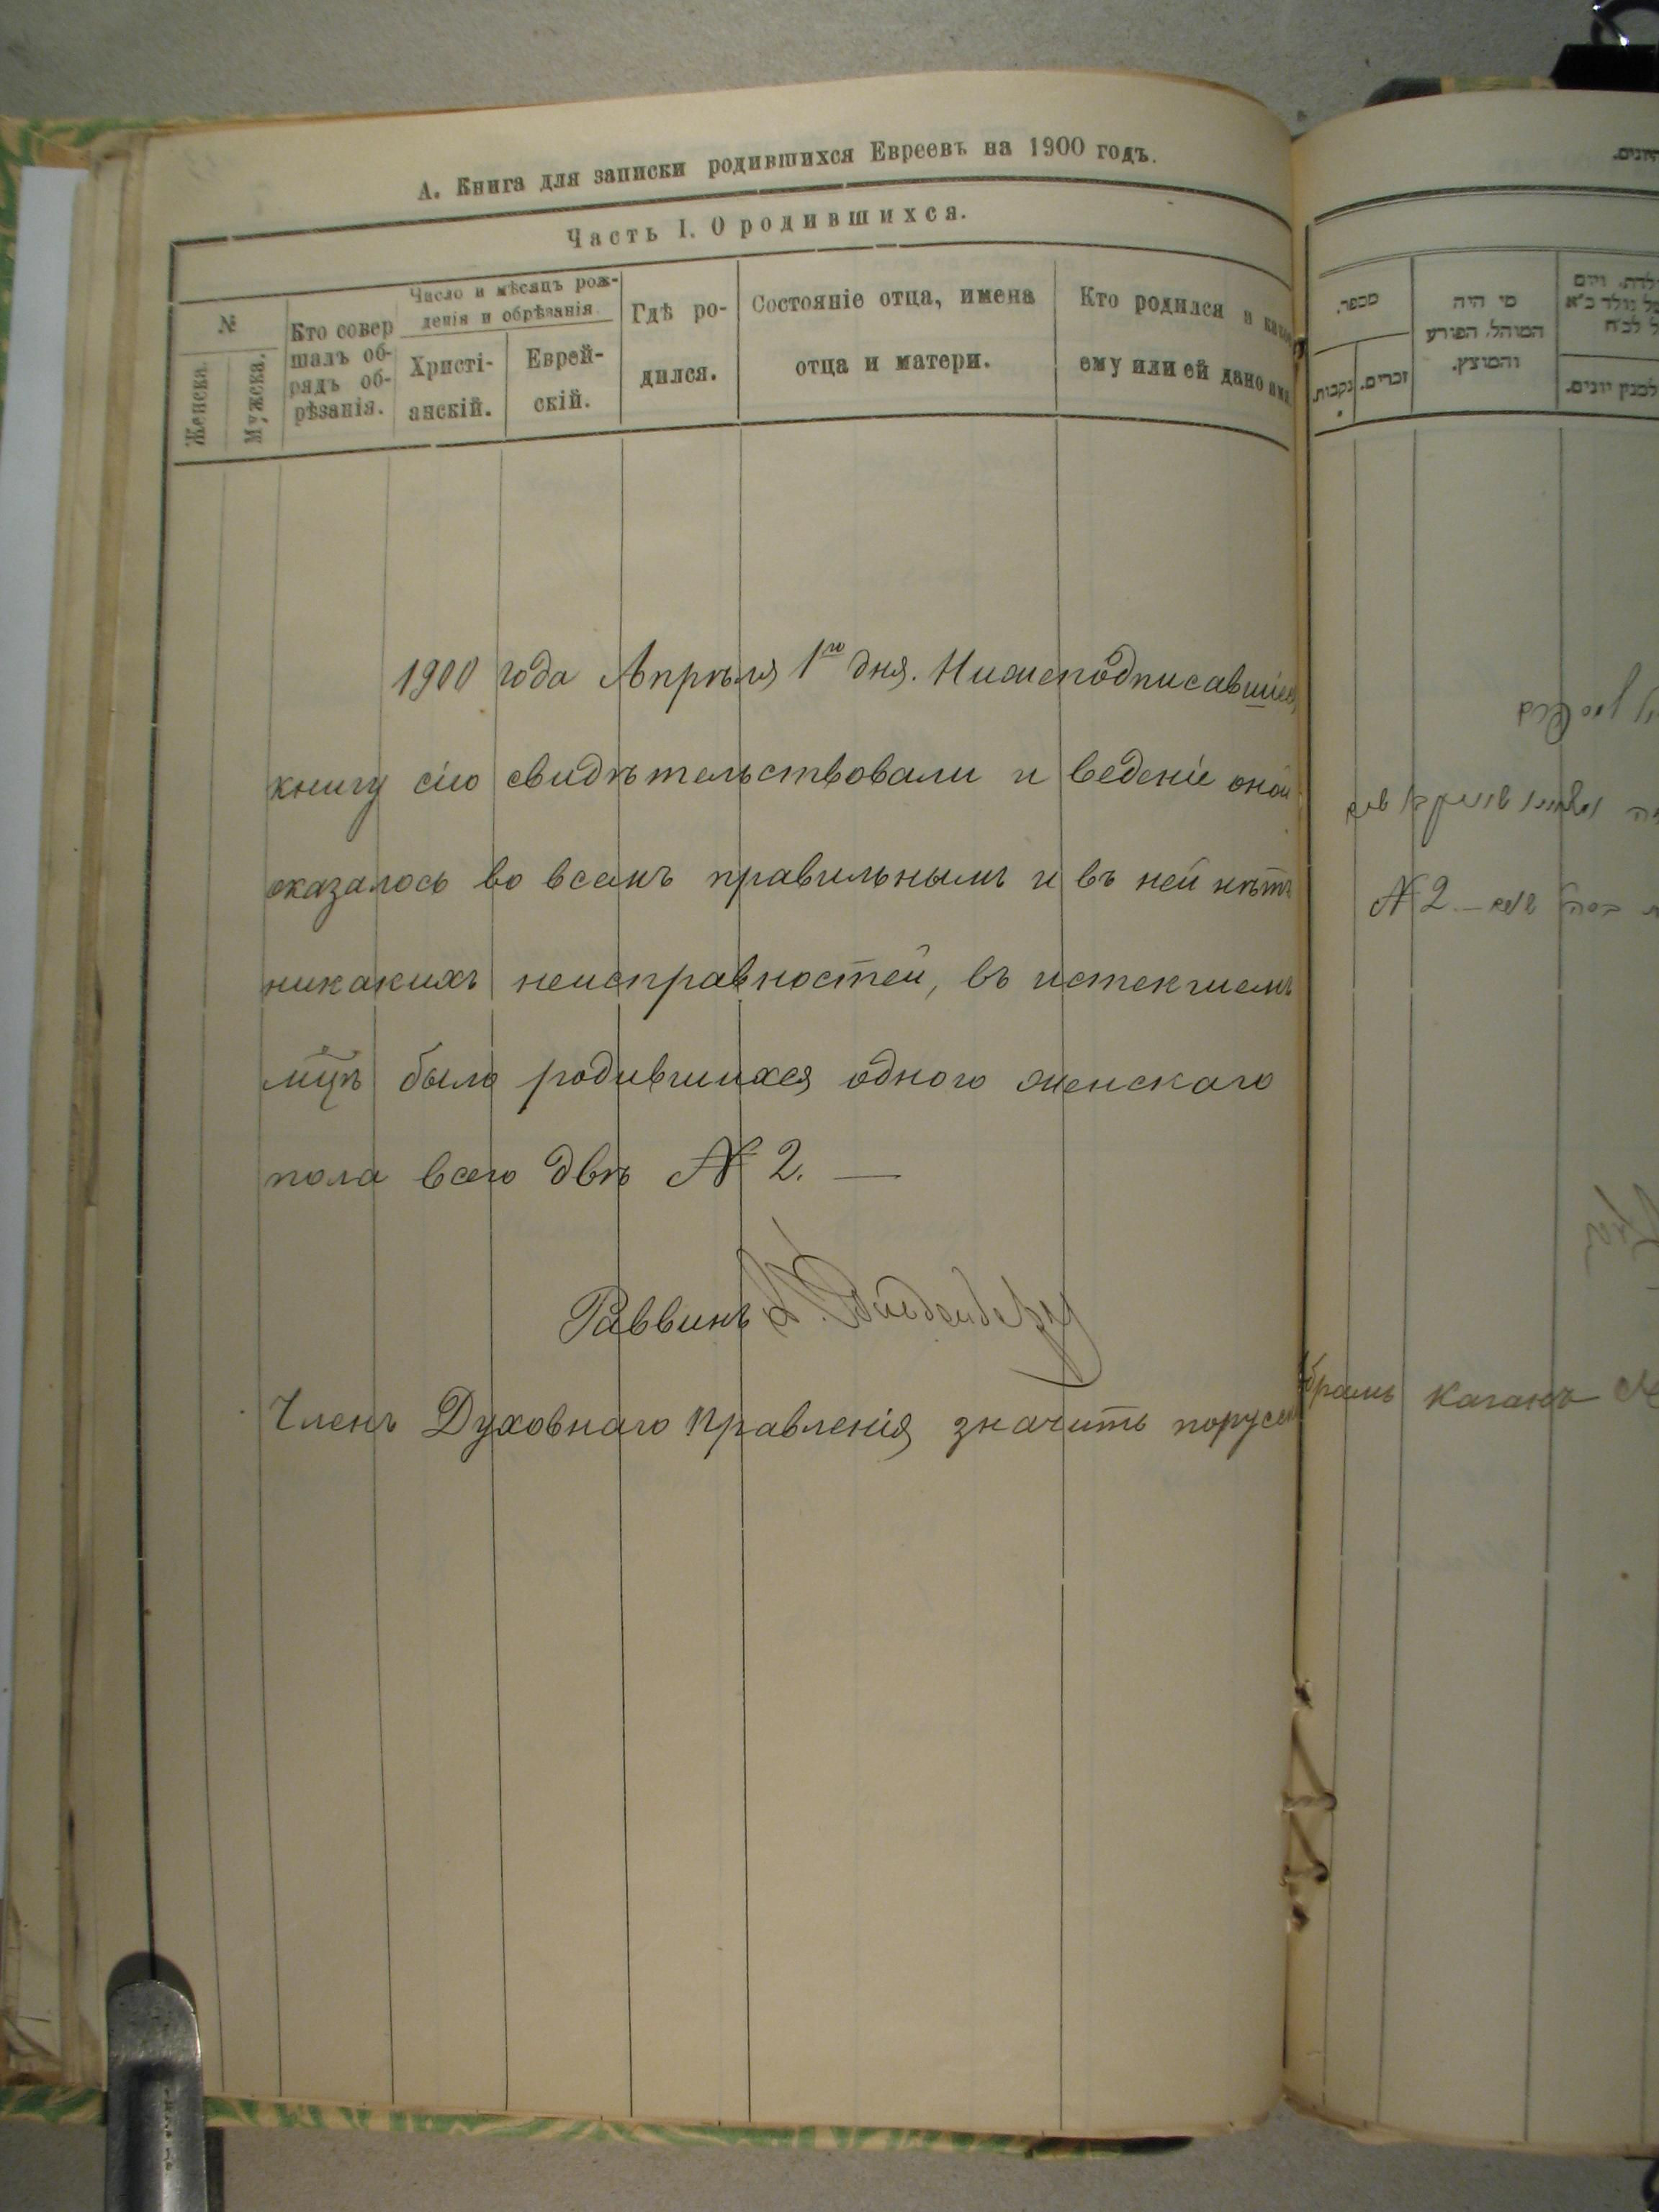 А. Книга для записки родившихся Евреевъ на 1900 годъ.
Часть I. О родившихся.
№
Женска.
Мужска.
Кто совер
шалъ об-
рядъ об-
рѣзанія.
Число и мѣсяцъ рож-
денія и обрѣзанія
Христі-
анскій.
Еврей-
скій.
Гдѣ ро-
дился.
Состояніе отца, имена
отца и матери.
Кто родился и како
ему или ей дано имя
1900 года Апрѣля 1го дня. Нижеподписавшіеся
книгу сію свидѣтельствовали и веденіе оной
оказалось во всемъ правильнымъ и въ ней нѣтъ
никакихъ неисправностей, въ истекшемъ
мцѣ было родившихся одного женскаго
пола всего двѣ № 2. —
Раввинъ
Членъ Духовнаго Правленія значитъ
מספר.
נקבות.
זכרים.
מי היה
המוהל, הפורע
והמוצץ.
למנין יונים.
№ 2. —
Каганъ